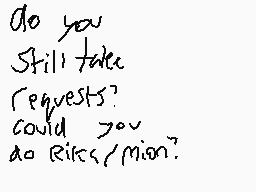 do you
still take
requests?
could you
do Rika/mion?